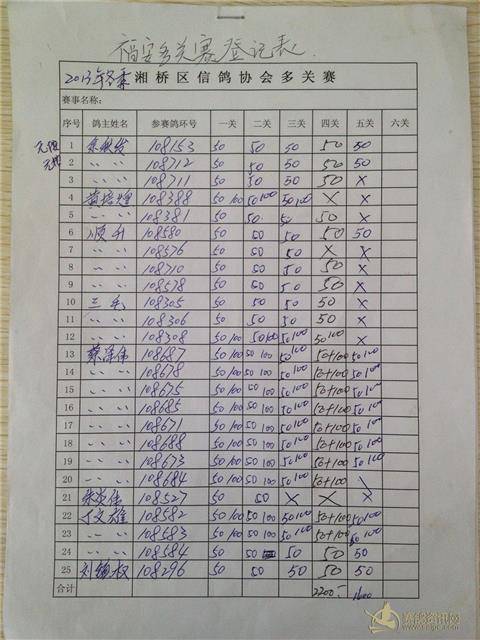 福安多关赛登记表
2013年冬季 湘桥区信鸽协会多关赛
赛事名称：
序号 鸽主姓名 参赛鸽环号 一关 二关 三关 四关 五关 六关
1 108153 50 50 50 50 50
2 〃 〃 108712 50 50 50 50 50
3 〃 〃 108711 50 50 50 50 ×
4 黄培煌 108388 50 100 50 100 50 100 × ×
5 〃 〃 108381 50 50 50 50 ×
6 顺升 108580 50 50 50 50 50
7 〃 〃 108576 50 50 50 × ×
8 〃 〃 108710 50 50 50 50 ×
9 〃 〃 108578 50 50 50 50 ×
10 三毛 108305 50 50 50 50 ×
11 〃 〃 108306 50 50 50 50 ×
12 〃 〃 108308 50 100 50 100 50 100 50 100 ×
13 108687 50 100 50 100 50 100 50+100 50 100
14 〃 〃 108678 50 100 50 100 50 100 50+100 50 100
15 〃 〃 108675 50 100 50 100 50 100 50+100 50 100
16 〃 〃 108685 50 100 50 100 50 100 50+100 50 100
17 〃 〃 108671 50 100 50 100 50 100 50+100 50 100
18 〃 〃 108688 50 100 50 100 50 100 50+100 50 100
19 〃 〃 108673 50 100 50 100 50 100 50+100 50 100
20 〃 〃 108684 50 100 50 100 50 100 50+100
21 108527 50 50 × × ×
22 丁文雄 108582 50 100 50 100 50 100 50+100 50 100
23 〃 〃 108583 50 100 50 100 50 100 50+100 50 100
24 〃 〃 108584 50 50 50 50 50
25 刘锦权 108296 50 50 50 50 50
合计 2200 1600
赛鸽资讯网